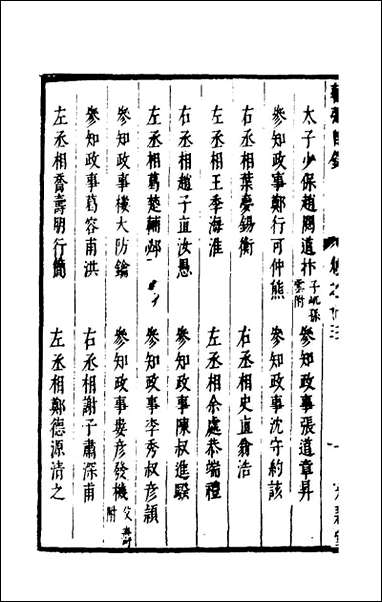 太子少保趙閱道抃 子屼孫雲附 叅知政事張道章昇
叅知政事鄭行可仲熊 叅知政事沈守約該
右丞相葉夢錫衡 右丞相史直翁浩
左丞相王季海淮 左丞相余處恭端禮
右丞相趙子直汝愚 叅知政事陳叔進騤
左丞相葛楚輔邲 叅知政事李秀叔彦穎
叅知政事樓大防鑰 叅知政事婁彦發機 父 附
叅知政事葛容甫洪 右丞相謝子肅深甫
左丞相喬壽朋行簡 左丞相鄭德源清之